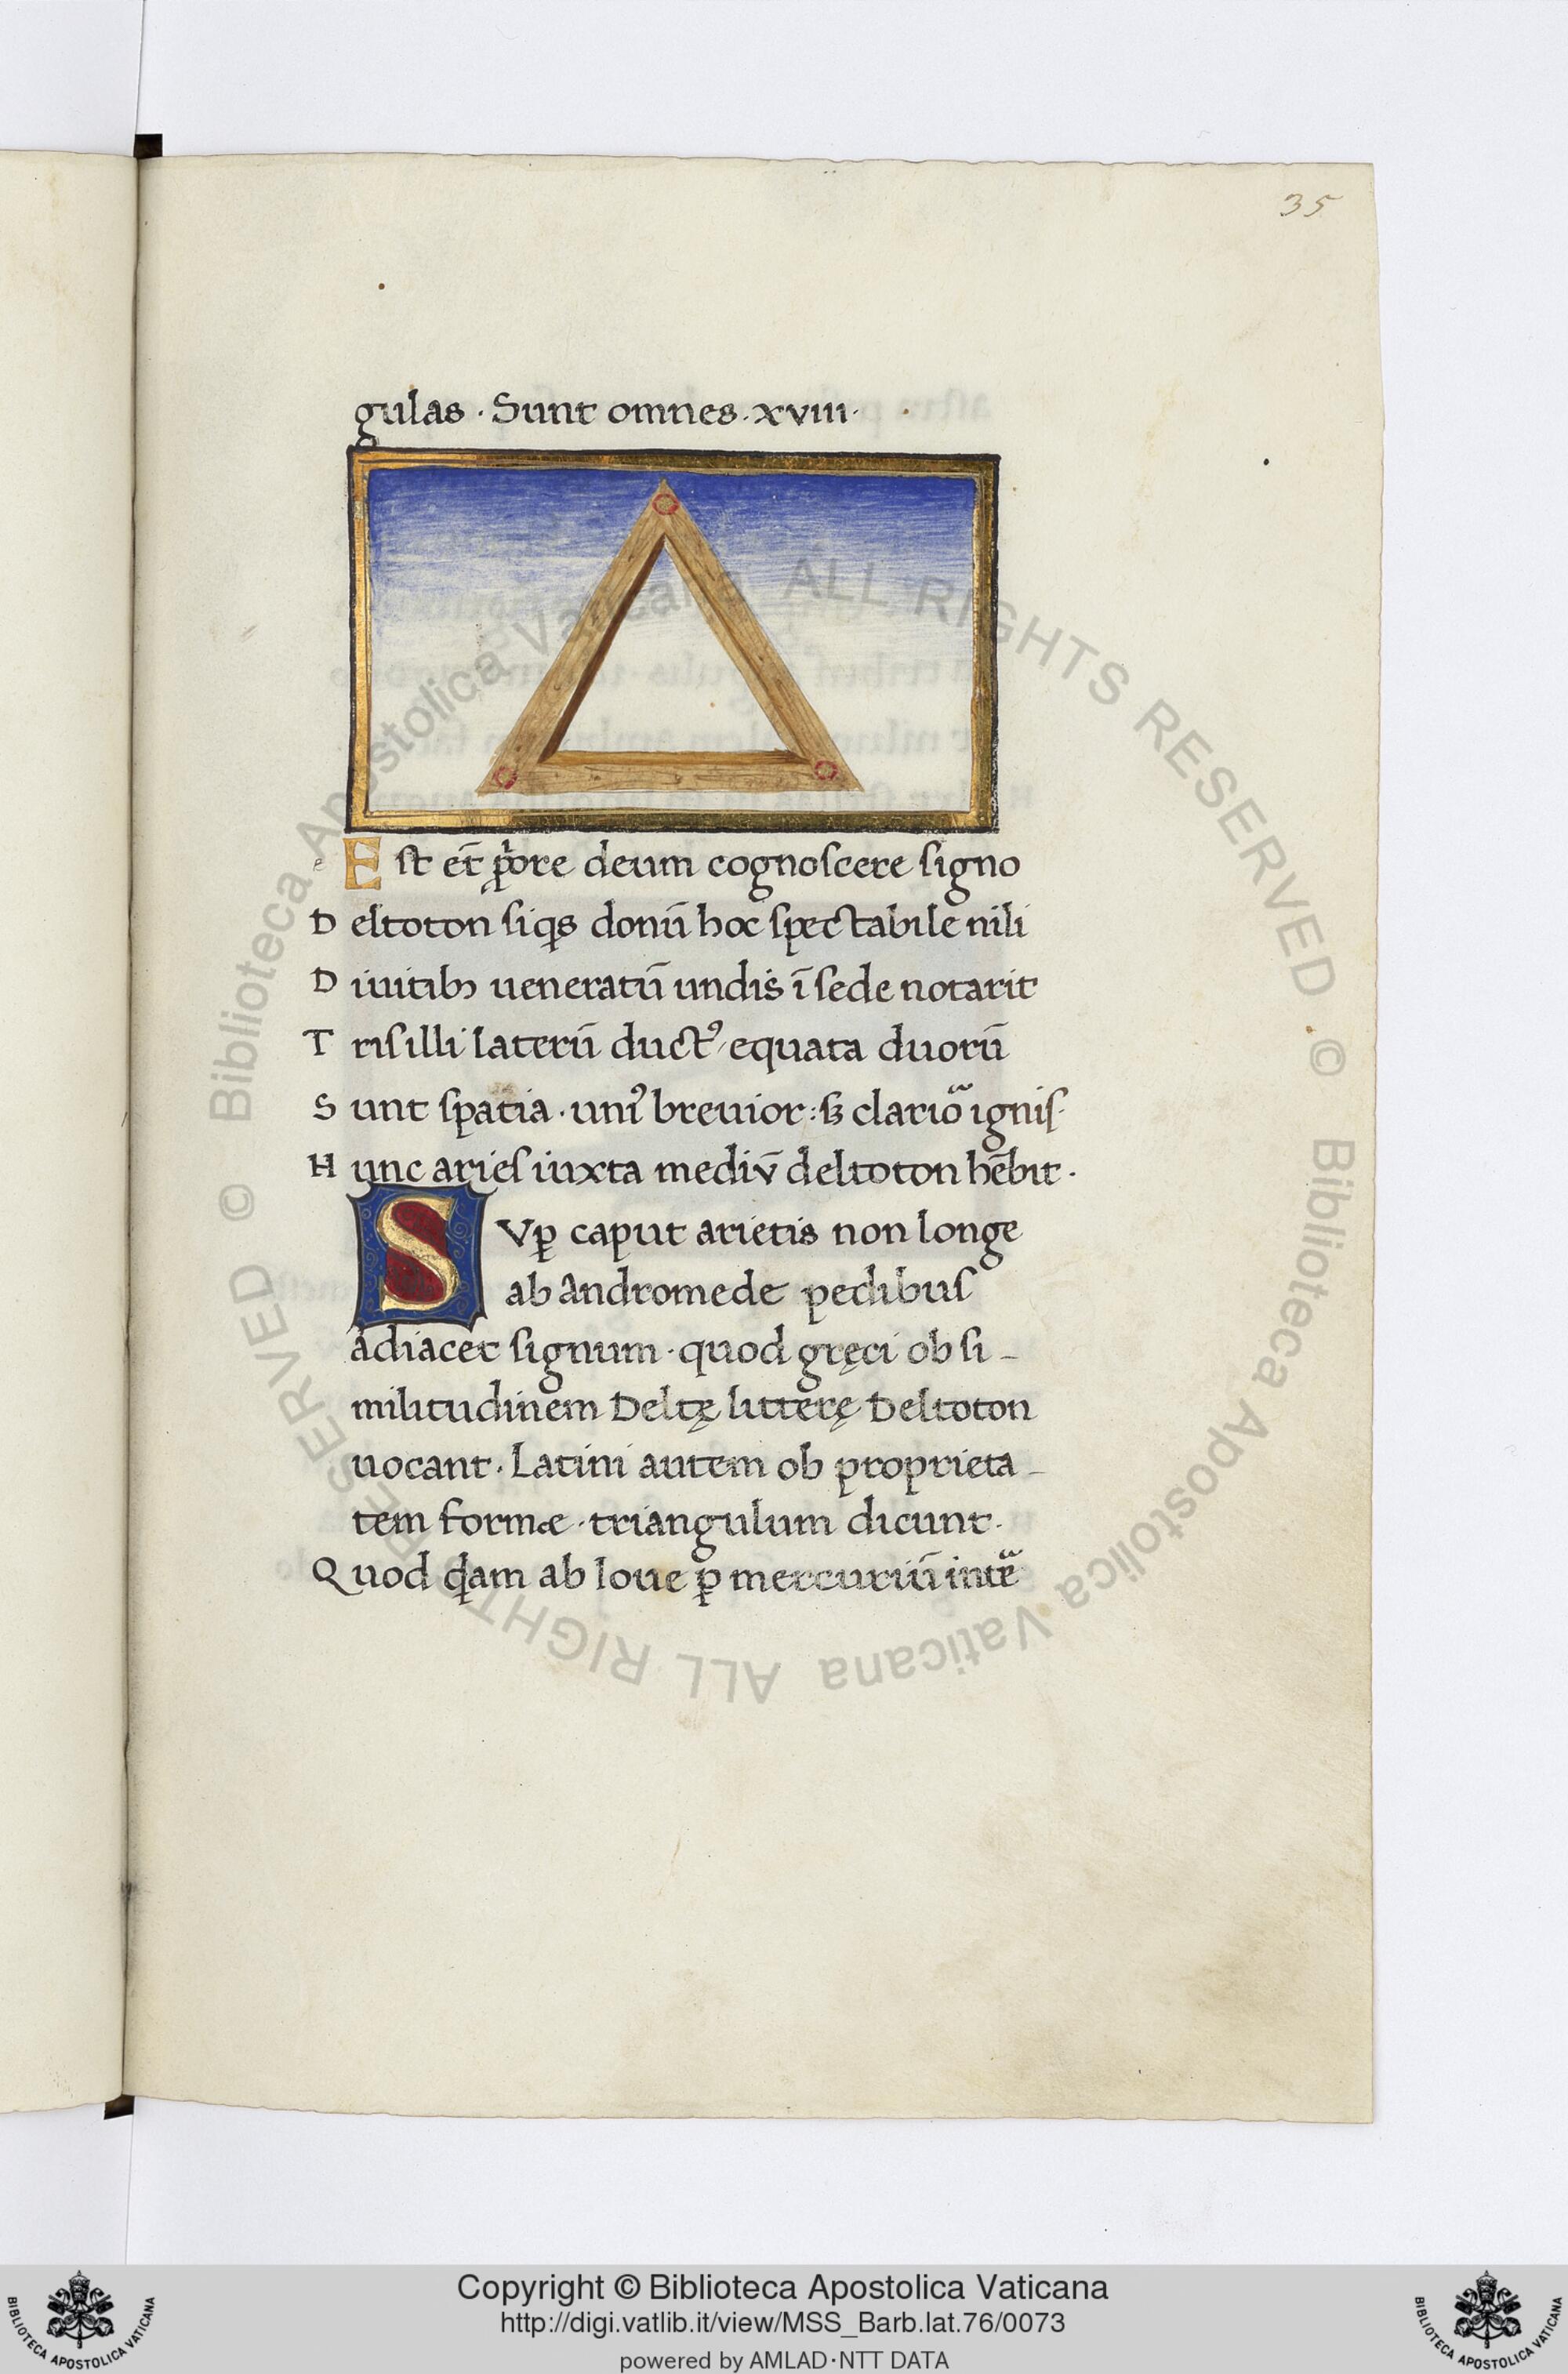 35
gulas · Sunt omnes · xviii ·
e Est et̄ p̱ͥore deum cognoſcere ſigno
Deltoton ſiqs donū hoc ſpectabile nili
Diuitibꝫ ueneratū undis ī ſede notarit
Triſ illi laterū ductꝰ equata duorū
Sunt ſpatia · unꝰ breuior : sꝫ clarioᷓ igniſ ·
Hunc arieſ iuxta mediv̄ deltoton hēbit ·
SVꝑ caput arietis non longe
ab Andromede pedibuſ
adiacet ſignum · quod gręci ob ſi -
militudinem Deltę litterę Deltoton
uocant · Latini autem ob proprieta -
tem formæ · triangulum dicunt ·
Quod qͥdam ab Ioue ꝑ mercuriū inteᷓ
© Biblioteca Apostolica Vaticana ALL RIGHTS RESERVED
© Biblioteca Apostolica Vaticana ALL RIGHTS RESERVED
Copyright © Biblioteca Apostolica Vaticana
http://digi.vatlib.it/view/MSS_Barb.lat.76/0073
powered by AMLAD·NTT DATA
BIBLIOTECA APOSTOLICA VATICANA
BIBLIOTECA APOSTOLICA VATICANA